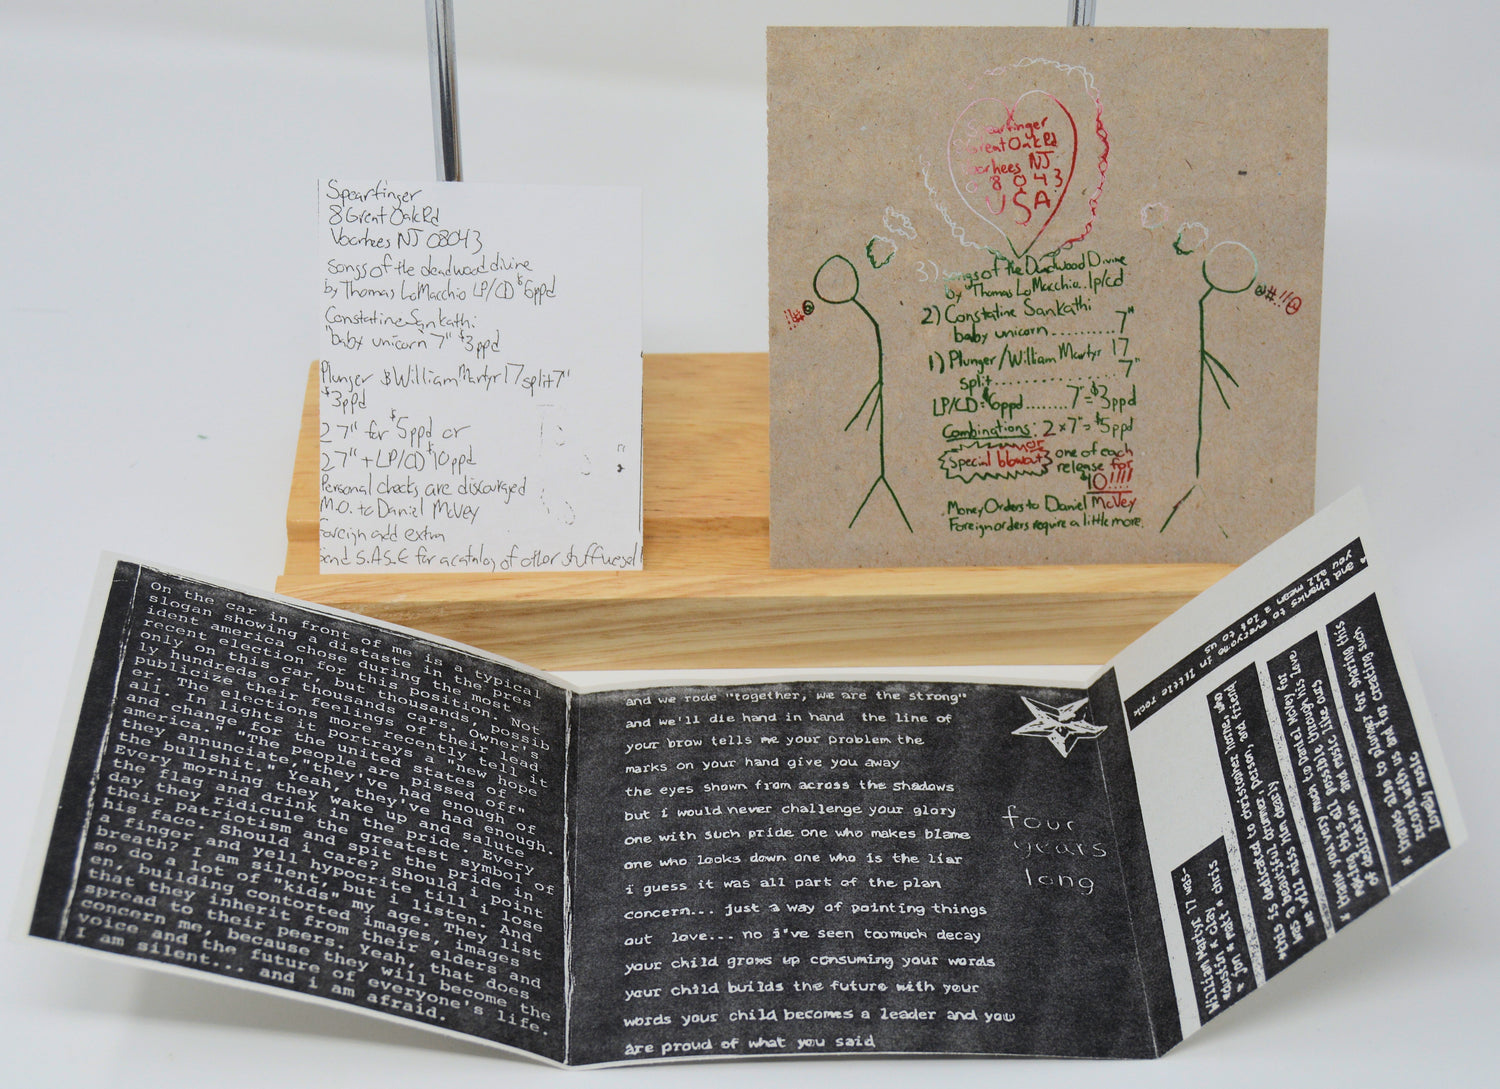 Spearfinger
8 Great Oak Rd
Voorhees NJ 08043
songs of the deadwood divine
by Thomas LoMacchio LP/CD $6ppd
Constatine Sankathi
"baby unicorn" 7" $3ppd
Plunger & William Martyr 17 split 7"
$3ppd
2 7" for $5ppd or
2 7" + LP/CD $10ppd
Personal checks are discouraged
M.O. to Daniel McVey
Foreign add extra
send S.A.S.E for a catalog of other stuff we sell
Spearfinger
8 Great Oak Rd
Voorhees NJ
08043
USA
3) songs of the Deadwood Divine
by Thomas LoMacchio. lp/cd
2) Constatine Sankathi
baby unicorn.......... 7"
1) Plunger/William Martyr 17
split............. 7"
LP/CD=$6ppd........7"=$3ppd
Combinations: 2x7"=$5ppd
or
Special blowout one of each
release for
$10!!!!
Money Orders to Daniel McVey
Foreign orders require a little more.
!!#@
@!!#@
On the car in front of me is a typical
slogan showing a distaste in the pres
ident america chose during the most
recent election for this position. Not
only on this car, but thousands, possib
ly hundreds of thousands cars. Owner's
publicize their feelings of their lead
er. The elections more recently tell it
all. In lights it portrays a "new hope
and change for the united states of
america." "The people are pissed off"
they annunciate,"they've had enough of
the bullshit." Yeah, they've had enough.
Every morning they wake up and salute
the flag and drink in the pride. Every
day they ridicule the greatest symbol of
their patriotism and spit the pride in
his face. Should i care? Should i point
a finger and yell hypocrite till i lose
breath? I am silent, but i listen. And
so do a lot of "kids" my age. They list
en, building contorted images, images
that they inherit from their elders and
spread to their peers. Yeah, that does
concern me, because they will become the
voice and the future of everyone's life.
I am silent... and i am afraid.
and we rode "together, we are the strong"
and we'll die hand in hand the line of
your brow tells me your problem the
marks on your hand give you away
the eyes shown from across the shadows
but i would never challenge your glory
one with such pride one who makes blame
one who looks down one who is the liar
i guess it was all part of the plan
concern... just a way of pointing things
out love... no i've seen toomuch decay
your child grows up consuming your words
your child builds the future with your
words your child becomes a leader and you
are proud of what you said
four
years
long
William Martyr 17 was-
x austin x clay x chris
x jon x matt x chris
*this is dedicated to christopher horne, who
was a beautiful drummer, person, and friend
we will miss him dearly
x thank you very much to Daniel McVey for
making this all possible through his love
of dedication and music like ours
x thanks also to plunger for sharing this
record with us and for creating such
lovely music
* and thanks to everyone in little rock
you all mean a lot to us